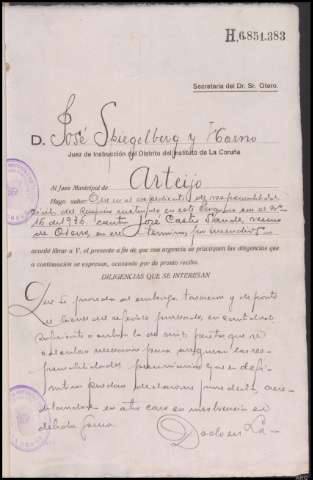 H,6851.383
Secretaría del Dr. Sr. Otero.
D. José Spiegelberg y Horno
Juez de Instrucción del Distrito del Instituto de La Coruña
Al Juez Municipal de Arteijo
Hago saber: Que en el expediente de responsabilidad
civil del
16 de 1936 contra José Castro vecino
de en ese término por
acordé librar a V. el presente a fin de que con urgencia se practiquen las diligencias que
a continuación se expresan, acusando por de pronto recibo.
DILIGENCIAS QUE SE INTERESAN
Que se proceda al embargo, tasación y depósito
de bienes del referido procesado, en cantidad
suficiente a cubrir la de mil pesetas que se
calculan necesarias para asegurar las res-
ponsabilidades pecuniarias que en defi-
nitiva puedan declararse procedentes, acre-
ditándose en otro caso su insolvencia en
debida forma.
Dado en La